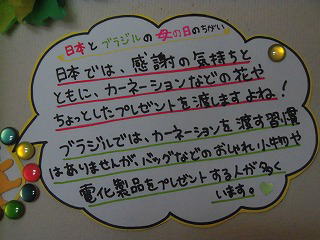 日本とブラジルの母の日のちがい
日本では、感謝の気持ちと
ともに、カーネーションなどの花や
ちょっとしたプレゼントを渡しますよね!
ブラジルでは、カーネーションを渡す習慣
はありませんが、バッグなどのおしゃれ小物や
電化製品をプレゼントする人が多く
います。